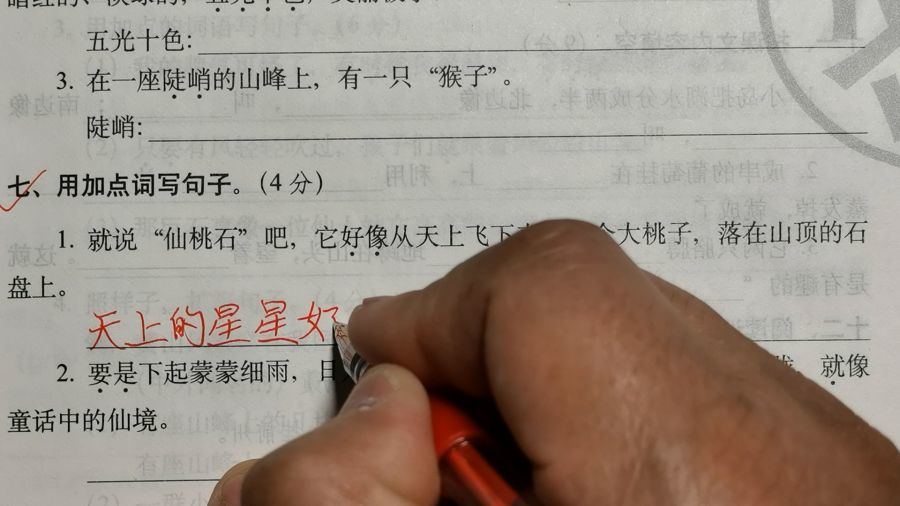 五光十色:
3. 在一座陡峭的山峰上，有一只“猴子”。
陡峭:
七、用加点词写句子。(4 分)
1. 就说“仙桃石”吧，它好像从天上飞下 个大桃子，落在山顶的石
盘上。
天上的星星好
2. 要是下起蒙蒙细雨，日 就像
童话中的仙境。